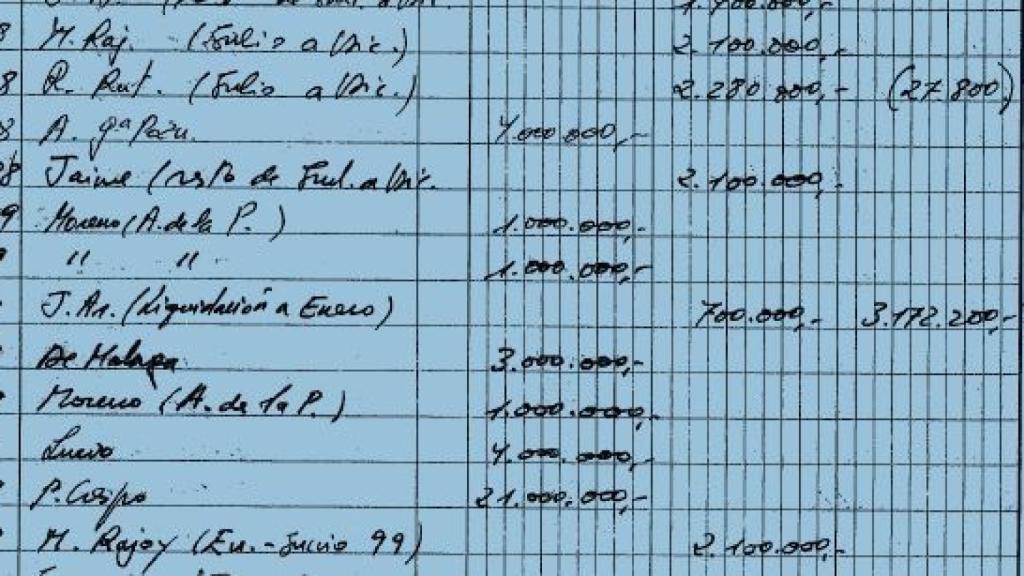 1.700.000,-
8 M. Raj. (Julio a Dic.) 2.100.000,-
8 R. Rat. (Julio a Dic.) 2.280.800,- (27.800)
8 A. Gª Pau. 4.000.000,-
98 Jaime (resto de Jul. a Dic. 2.100.000,-
9 Moreno (A. de la P.) 1.000.000,-
" " 1.000.000,-
J. Ar. (Liquidación a Enero) 700.000,- 3.172.200,-
De Malaga 3.000.000,-
Moreno (A. de la P.) 1.000.000,-
4.000.000,-
P. Crespo 21.000.000,-
M. Rajoy (En.-Junio 99) 2.100.000,-